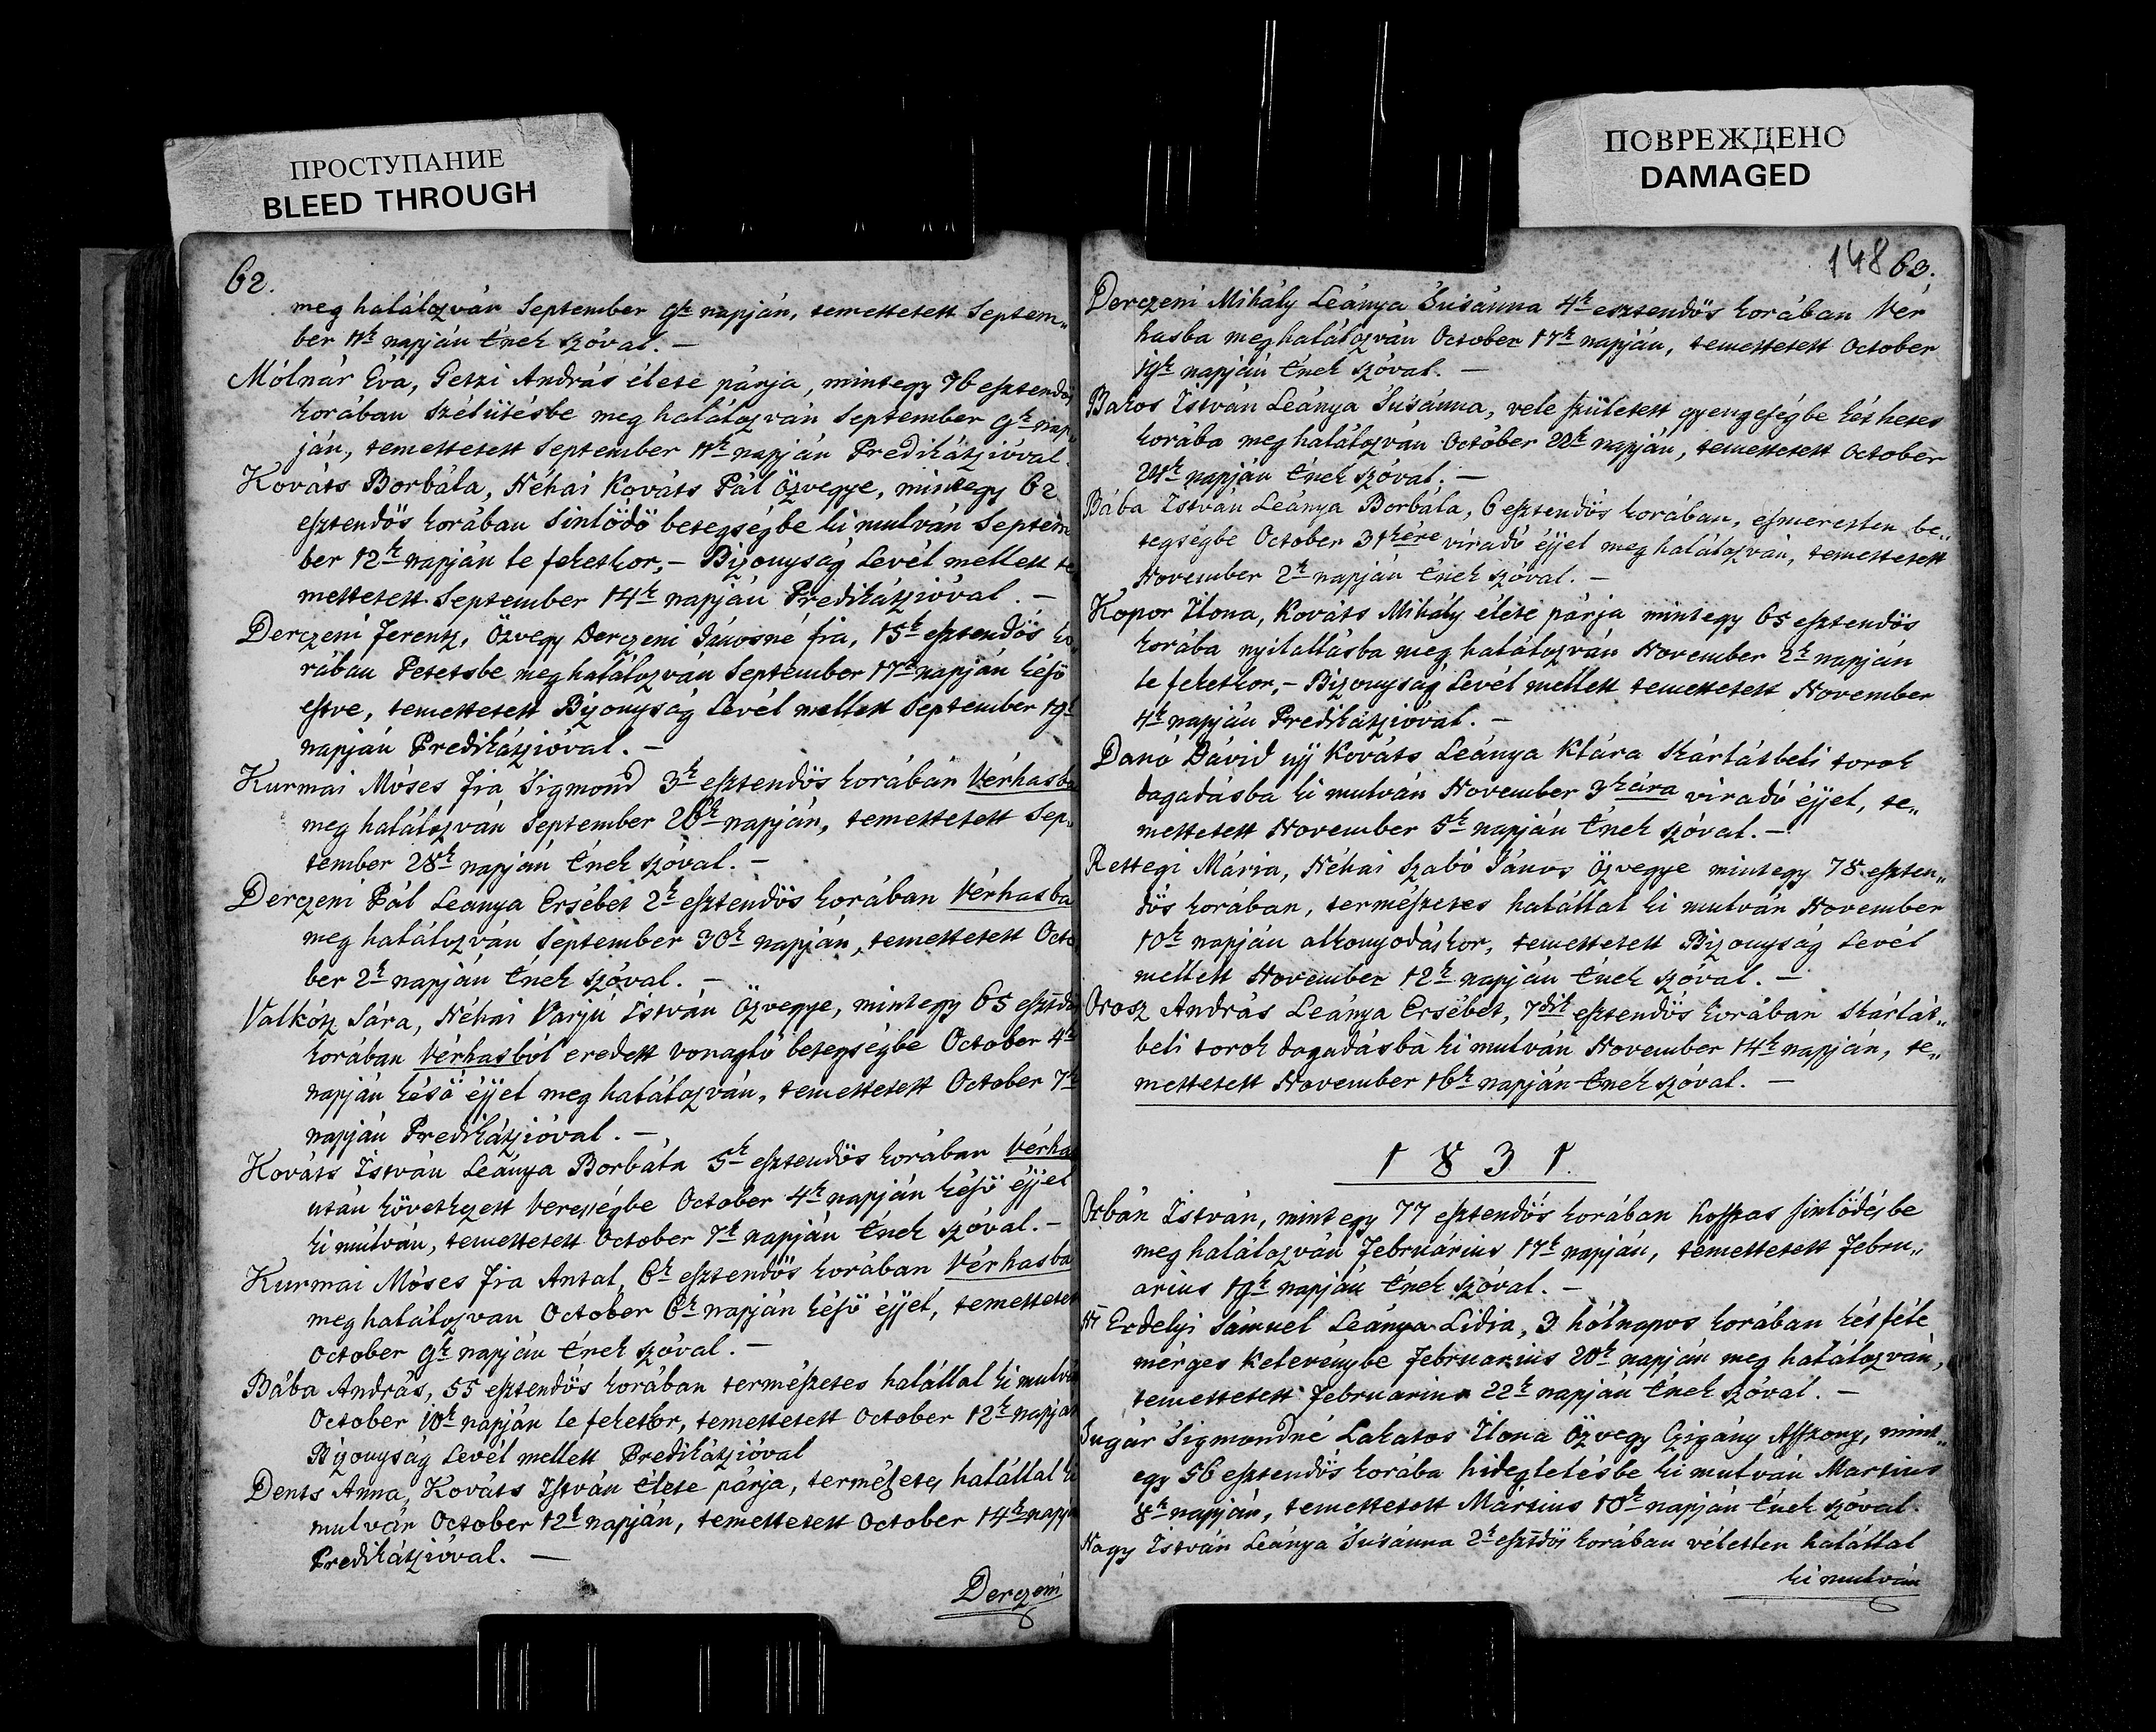 ПРОСТУПАНИЕ
BLEED THROUGH
ПОВРЕЖДЕНО
DAMAGED
62.
meg halálozván September 9k napján, temettetett Septem„
ber 11k napján Ének szóval. —
Mólnár Éva, Petzi András élete párja, mintegy 76 esztendős
korában szélütésbe meg halálozván September 9k nap„
ján, temettetett September 11k napján Predikátzióval
Kováts Borbála, Néhai Kováts Pál Özvegye, mintegy 62
esztendős korában Sinlődő betegségbe ki mulván Septem
ber 12k napján le feketkor, – Bizonyság Levél mellett te
mettetett September 14k napján Predikátzióval. —
Derczeni Ferentz, Özvegy Derczeni Jánosné fia, 15k esztendős ko
rában Petetsbe meg halálozván September 17k napján késő
estve, temettetett Bizonyság Levél mellett September 19k
napján Predikátzióval. —
Kurmai Móses fia Sigmond 3k esztendős korában Vérhasba
meg halálozván September 26k napján, temettetett Sep„
tember 28k napján Ének szóval. —
Derczeni Pál Leanya Ersébet 2k esztendős korában Vérhasba
meg halálozván September 30k napján, temettetett Octo
ber 2k napján Ének szóval. —
Valkótz Sára, Néhai Varjú István Özvegye, mintegy 65 eszt
korában Vérhasból eredett vonagló betegségbe October 4k
napján késő éjjel meg halálozván, temettetett October 7k
napján Predikátzióval. —
Kováts István Leánya Borbála 5k esztendős korában Vérhas
után következett Verességbe October 4k napján késő éjjel
ki múlván, temettetett October 7k napján Ének szóval. —
Kurmai Móses fia Antal, 6k esztendős korában Vérhasba
meg halálozvan October 6k napján késő éjjel, temettetett
October 9k napján Ének szóval. —
Bába András, 55 esztendős korában természetes halállal ki mulván
October 10k napján le feketkor, temettetett October 12k napján
Bizonyság Levél mellett Predikátzióval
Dents Anna, Kováts István Élete párja, természetes halállal ki
mulván October 12k napján, temettetett October 14k napján
Predikátzióval. —
Derczeni
148 63.
Derczeni Mihály Leánya Susánna 4k esztendős korában Vér
hasba meghalálozván October 17k napján, temettetett October
19k napján Ének szóval. —
Bakos István Leánya Susánna, vele született gyengeségbe két hetes
korába meg halálozván October 22k napján, temettetett October
24k napján Ének szóval. —
Bába István Leánya Borbála, 6 esztendős korában, esmeretlen be„
tegségbe October 31kére viradó éjjel meg halálozván, temettetett
November 2k napján Ének szóval. —
Kopor Ilona, Kováts Mihály élete párja mintegy 65 esztendős
korába nyilallásba meg halálozván November 2k napján
le feketkor, – Bizonyság Levél mellett temettetett November
4k napján Predikátzióval. —
Danó Dávid ujj Kováts Leánya Klára Skárlátbeli torok
dagadásba ki mulván November 3kára viradó éjjel, te„
mettetett November 5k napján Ének szóval. —
Rettegi Mária, Néhai Szabó János Özvegye mintegy 78 eszten„
dős korában, természetes halállal ki mulván November
10k napján alkonyodáskor, temettetett Bizonyság Levél
mellett November 12k napján Ének szóval. —
Orosz András Leánya Ersébet, 7dik esztendős korában Skárlát„
beli torok dagadásba ki mulván November 14k napján, te„
mettetett November 16k napján Ének szóval. —
1831.
Orbán István, mint egy 77 esztendős korában hoszszas sinlődésbe
meg halálozván Februárius 17k napján, temettetett Febru„
arius 19k napján Ének szóval. —
Erdelyi Sámuel Leánya Lidia, 3 hólnapos korában kétféle
mérges kelevénybe Februarius 20k napján meg halálozván,
temettetett Februarius 22k napján Ének szóval. —
Sugár Sigmondné Lakatos Ilona Özvegy Czigány Aszszony, mint„
egy 56 esztendős korába hideglelésbe ki mulván Martius
8k napján, temettetett Mártius 10k napján Ének szóval.
Nagy István Leánya Susánna 2k esztdős korában véletlen halállal
ki mulván